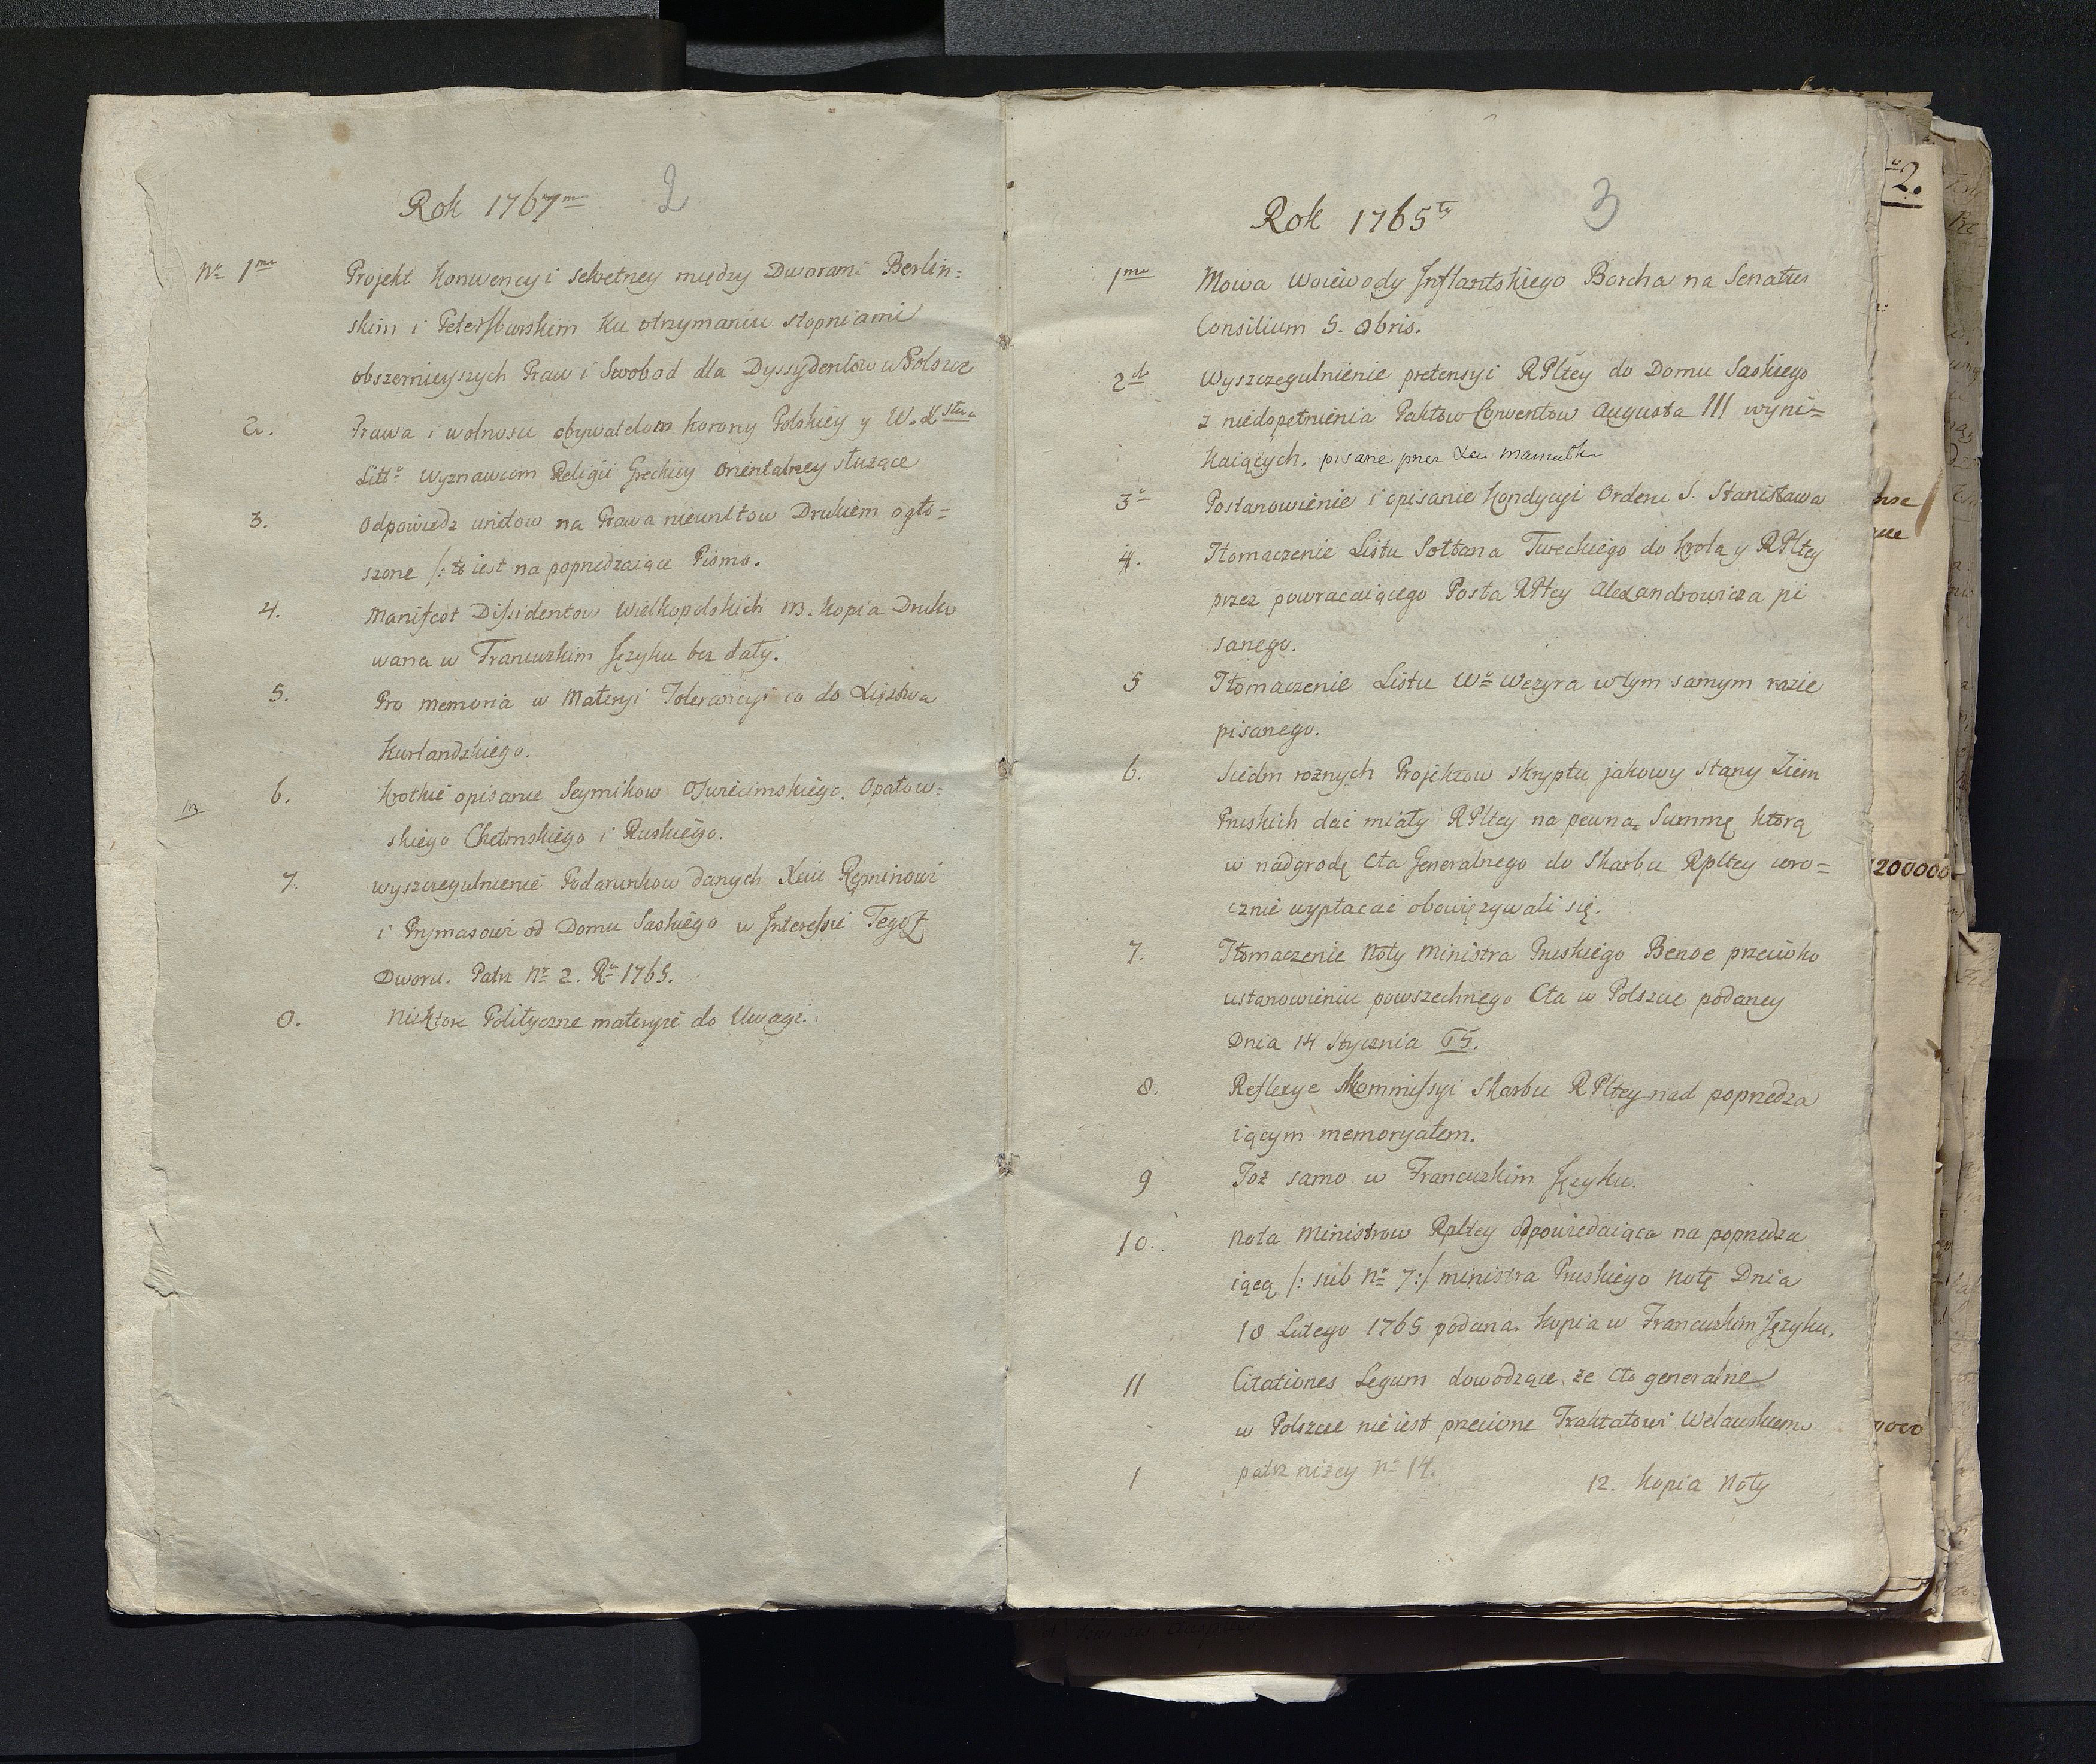 Rok 1767mo
2
No 1mo Projekt Konwencyi sekretney między Dworami Berlin=
skim i Petersburskim Ku otrzymaniu stopniami
obszernieyszych Praw i Swobod dla Dyssydentow w Polszcze
2. Prawa i wolnosci obywatelom Korony Polskiey y W. Xstwa
Litto Wyznawcom Religii Greckiey Orientalney służące
3. Odpowiedz unitow na Prawa nieunitow Drukiem ogło=
szone /: to iest na poprzedzaiące Pismo.
4. Manifest Dissidentow Wielkopolskich m. Kopia Druko
wana w Francuzkim Języku bez daty.
5. Pro memoria w Materyi Tolerancyi co do Xięstwa
Kurlandzkiego.
6. Krotkie opisanie Seymikow Oswiecimskiego. Opatow=
skiego Chełmskiego i Ruskiego.
7. wyszczegulnienie Podarunkow danych Xciu Repninowi
i Prymasowi od Domu Saskiego w Interessie Tegoż
Dworu. Patrz No 2. Ru 1765.
8. Niektore Polityczne materyie do Uwagi.
Rok 1765ty
3
1mo Mowa Woiewody Inflantskiego Borcha na Senatus
Consilium 5. 8bris.
2do Wyszczegulnienie pretensyi RPltey do Domu Saskiego
z niedopełnienia Paktow Conventow Augusta III wyni=
kaiących. pisane przez
3o Postanowienie i opisanie Kondycyi Orderu S. Stanisława
4. Tłomaczenie Listu Sołtana Tureckiego do Krola y RPltey
przez powracaiącego Posła RPltey Alexandrowicza pi
sanego.
5 Tłomaczenie Listu Wo Wezyra w tym samym razie
pisanego.
6. Siedm roznych Projektow skryptu jakowy Stany Ziem
Pruskich dać miały RPltey na pewną Summę którą
w nadgrodę Cła Generalnego do Skarbu Rpltey coro=
cznie wypłacać obowięzywali się.
7. Tłomaczenie Noty Ministra Pruskiego Benoe przeciwko
ustanowieniu powszechnego Cła w Polszcze podaney
Dnia 14 Stycznia 65.
8. Reflexye Kommissyi Skarbu RPltey nad poprzedza
iącym memoryałem.
9 Toż samo w Francuzkim Języku.
10. Nota Ministrow Rpltey odpowiedaiąca na poprzedza
iącą /: sub No 7:/ ministra Pruskiego Notę Dnia
18 Lutego 1765 podana. Kopia w Francuzkim Języku.
11 Citationes Legum dowodzące że Cło generalne
w Polszcze nie iest przeciwne Traktatowi Welawskiemu
1 patrz niżey No 14.
12. Kopia Noty
2.
200000